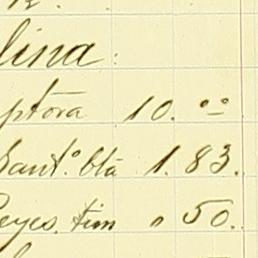 lina:
ptora 10.00
Sant.º bta 1.83.
Reyes. tim " 50.